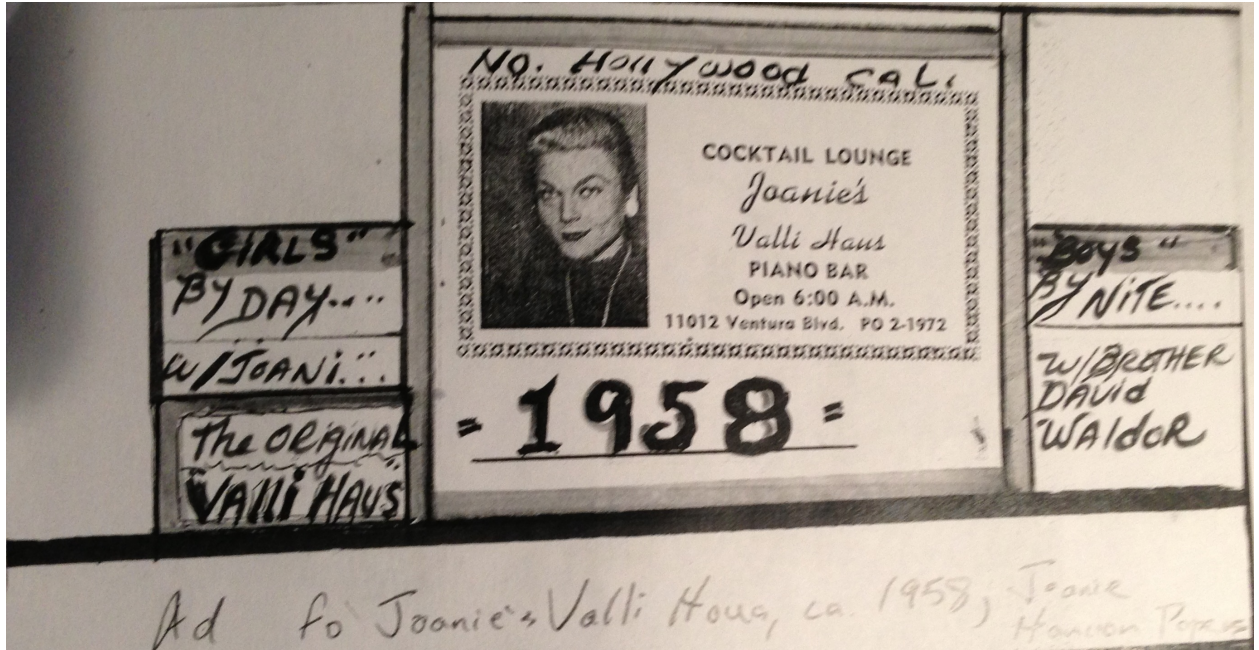 No. Hollywood CAL.
COCKTAIL LOUNGE
Joanie's
Valli Haus
PIANO BAR
Open 6:00 A.M.
11012 Ventura Blvd. PO 2-1972
= 1958 =
"GIRLS"
BY DAY....
W/JOANi...
The ORIGINAL
VAlli HAUS
"Boys"
BY NiTE....
W/BROTHER
DAVID
WAldoR
Ad fo Joanie's Valli Haus, ca. 1958, Joanie
Papers